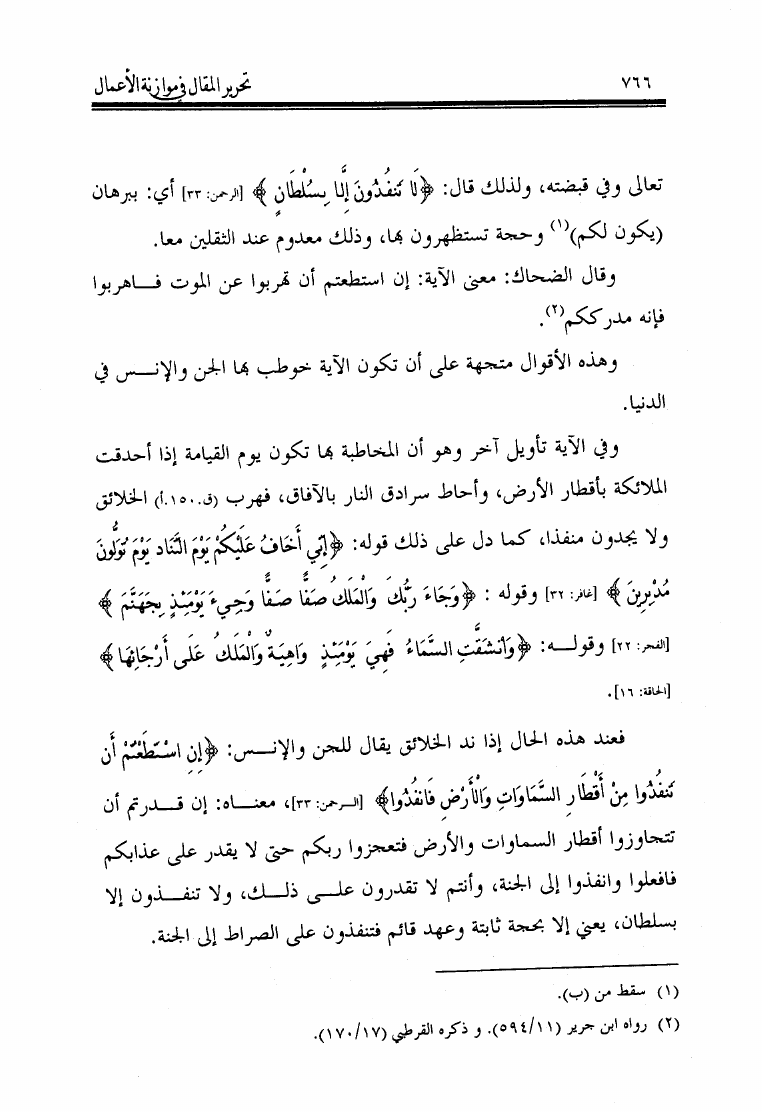 ٧٦٦ تحرير المقال في موازنة الأعمال
تعالى وفي قبضته، ولذلك قال: ﴿لَا تَنفُذُونَ إِلَّا بِسُلْطَانٍ﴾ [الرحمن: ٣٣] أي: ببرهان
(يكون لكم)(١) وحجة تستظهرون بها، وذلك معدوم عند الثقلين معا.
وقال الضحاك: معنى الآية: إن استطعتم أن تهربوا عن الموت فـاهربوا
فإنه مدرككم(٢).
وهذه الأقوال متجهة على أن تكون الآية خوطب بها الجن والإنـس في
الدنيا.
وفي الآية تأويل آخر وهو أن المخاطبة بها تكون يوم القيامة إذا أحدقت
الملائكة بأقطار الأرض، وأحاط سرادق النار بالآفاق، فهرب (ق.١٥٠.أ) الخلائق
ولا يجدون منفذا، كما دل على ذلك قوله: ﴿إِنِّي أَخَافُ عَلَيْكُمْ يَوْمَ التَّنَادِ يَوْمَ تُوَلُّونَ
مُدْبِرِينَ﴾ [غافر: ٣٢] وقوله : ﴿وَجَاءَ رَبُّكَ وَالْمَلَكُ صَفًّا صَفًّا وَجِيءَ يَوْمَئِذٍ بِجَهَنَّمَ﴾
[الفجر: ٢٢] وقولـه: ﴿وَانشَقَّتِ السَّمَاءُ فَهِيَ يَوْمَئِذٍ وَاهِيَةٌ وَالْمَلَكُ عَلَى أَرْجَائِهَا﴾
[الحاقة: ١٦].
فعند هذه الحال إذا ند الخلائق يقال للجن والإنـس: ﴿إِنِ اسْتَطَعْتُمْ أَن
تَنفُذُوا مِنْ أَقْطَارِ السَّمَاوَاتِ وَالْأَرْضِ فَانفُذُوا﴾ [الـرحمن: ٣٣]، معنـاه: إن قـدرتم أن
تتجاوزوا أقطار السماوات والأرض فتعجزوا ربكم حتى لا يقدر على عذابكم
فافعلوا وانفذوا إلى الجنة، وأنتم لا تقدرون علـى ذلـك، ولا تنفـذون إلا
بسلطان، يعني إلا بحجة ثابتة وعهد قائم فتنفذون على الصراط إلى الجنة.
(١) سقط من (ب).
(٢) رواه ابن جرير (٥٩٤/١١). و ذكره القرطبي (١٧٠/١٧).